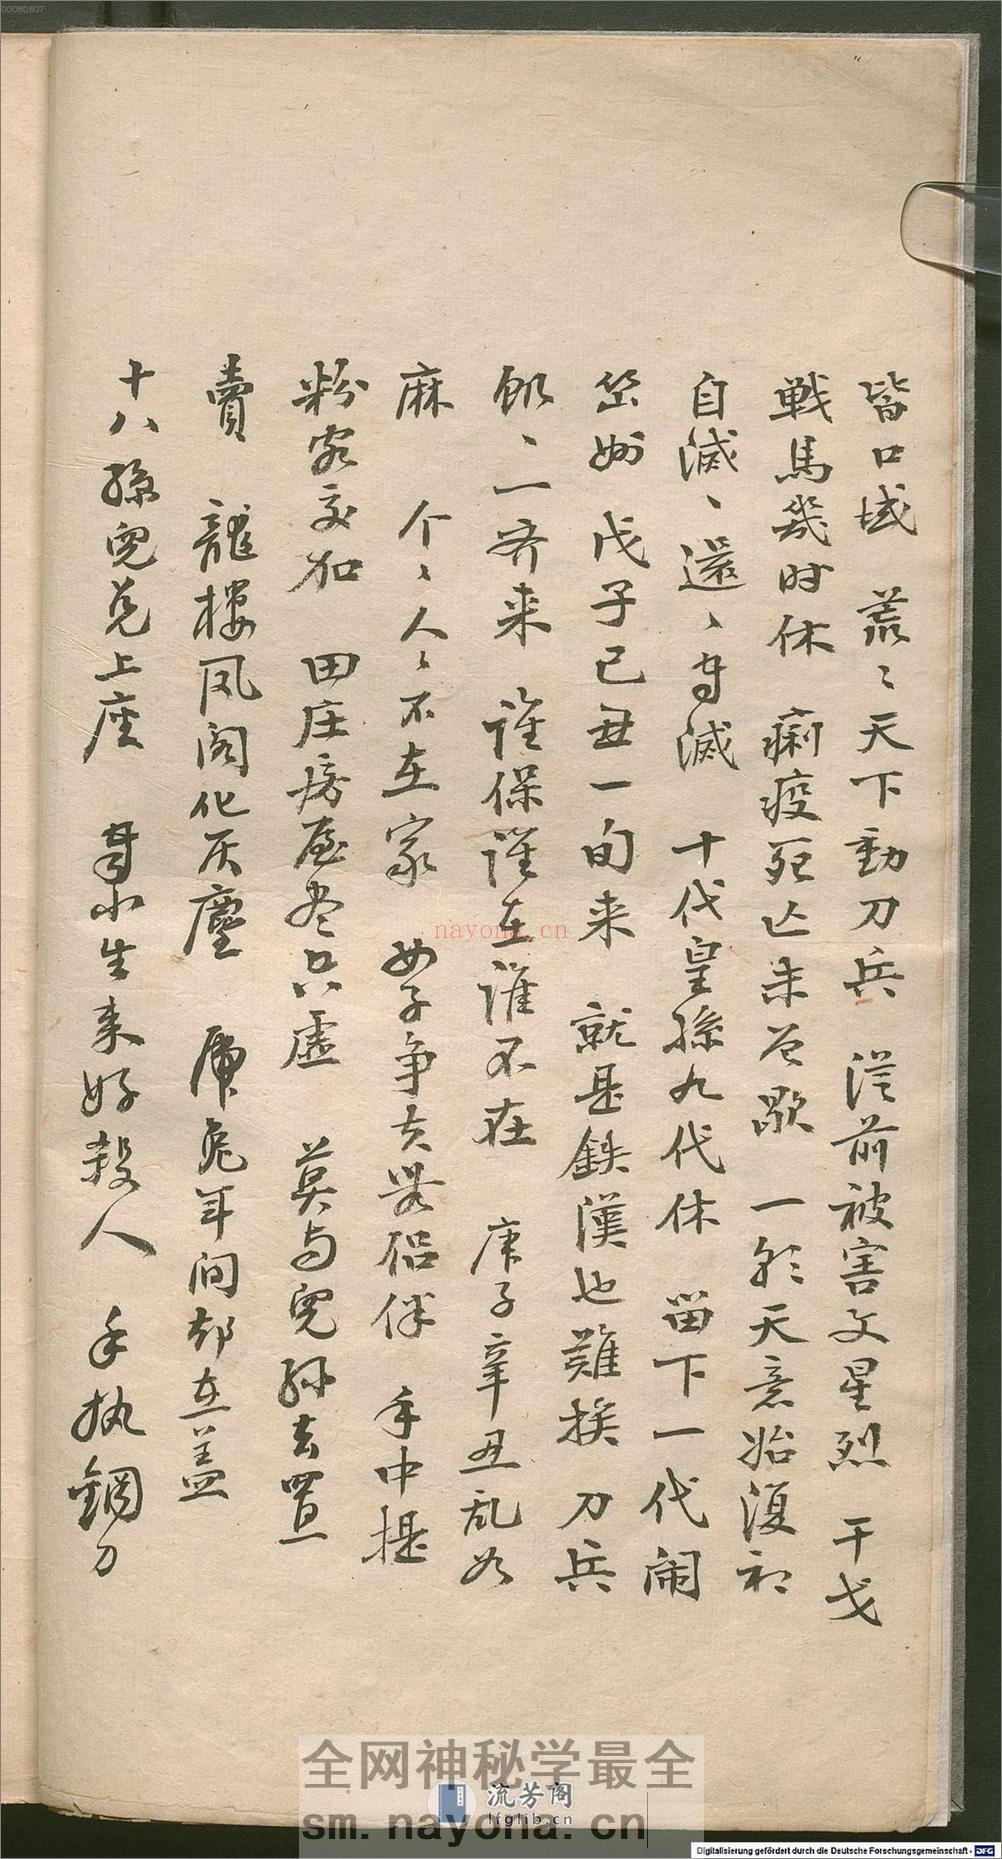 00080807
皆口域 荒〻天下動刀兵 從前被害文星烈 干戈
戦馬幾时休 痢疫死亡未曽歇 一形天意始復初
自滅、還、自滅 十代皇孫九代休 留下一代闹
州 戊子己丑一旬来 就是鉄漢也難挨 刀兵
飢、一齐来 谁保谁在谁不在 庚子辛丑乱如
麻 个〻人〻不在家 女子争夫男侣伴 手中提
粉客交加 田庄房屋尽只虚 莫与児孙去置
賣 龍楼凤阁化灰塵 虎兔年间却在盖
十八孫児兑上座 自小生来好殺人 手执鋼刀
nayona.cn
全网神秘学最全
流芳阁
lfglib.cn
sm.nayona.cn
Digitalisierung gefördert durch die Deutsche Forschungsgemeinschaft - DFG